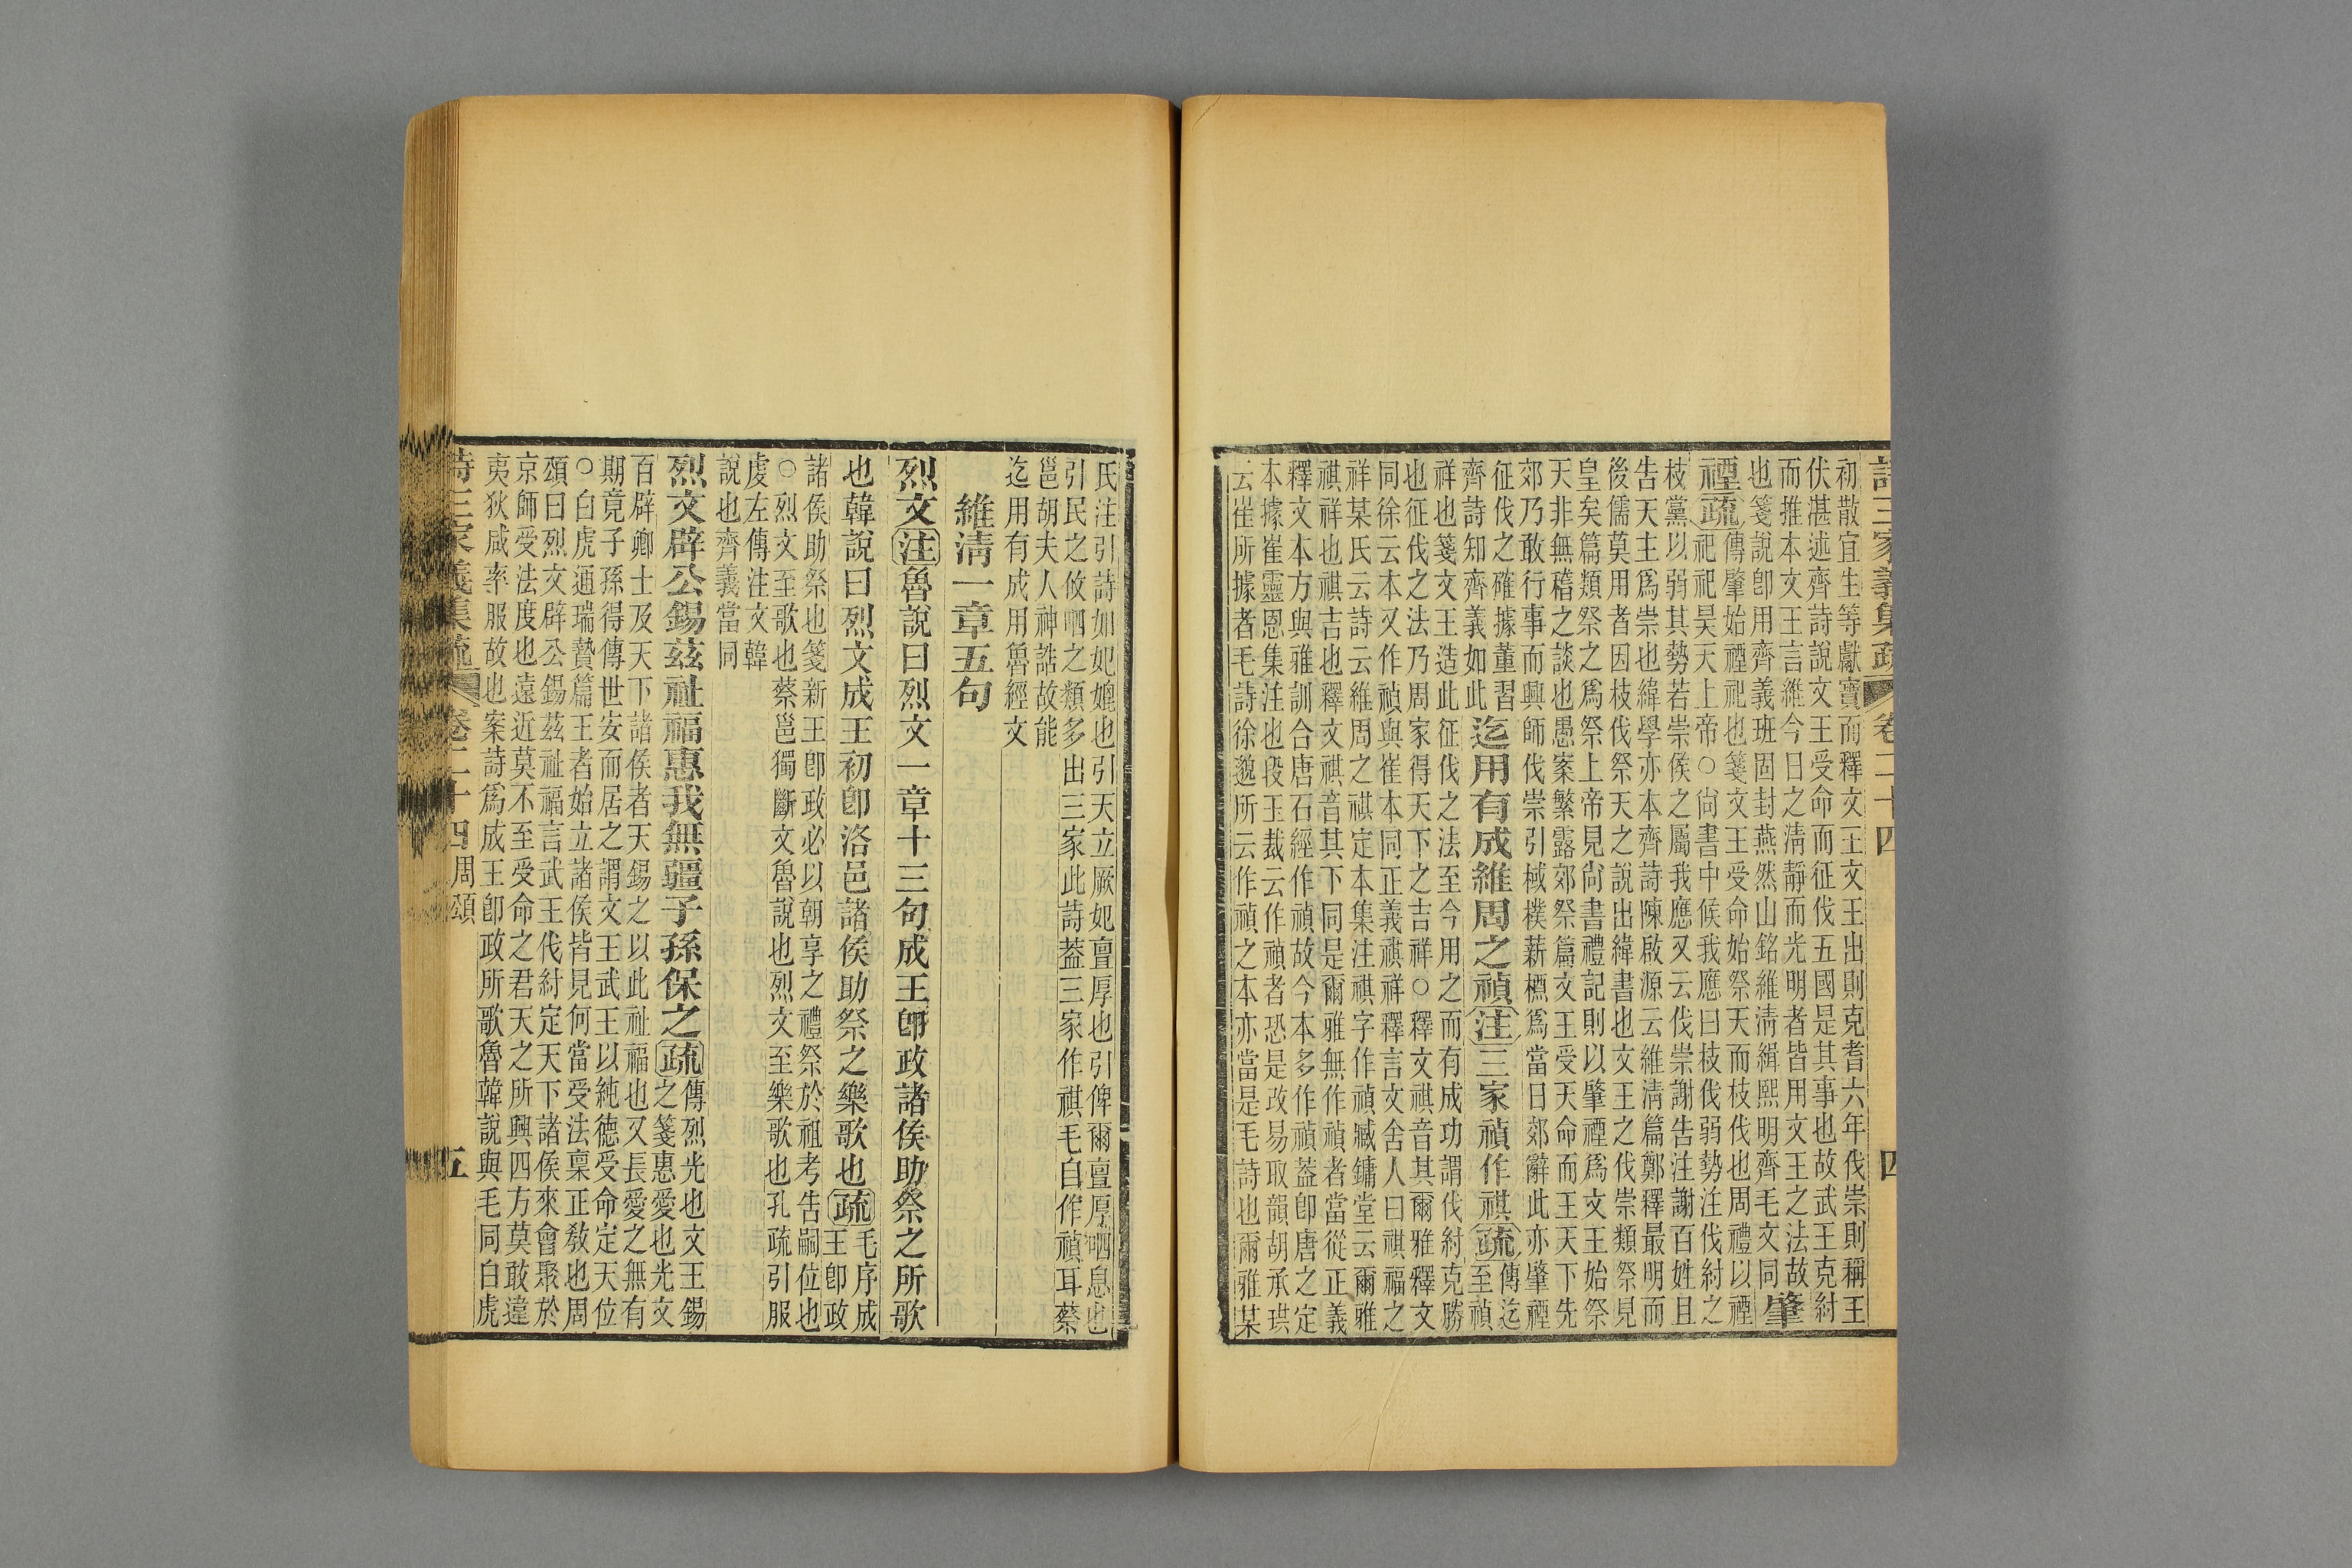 詩三家義集疏 卷二十四 四
初散宜生等獻寶而釋文王文王出則克耆六年伐崇則稱王
伏湛述齊詩說文王受命而征伐五國是其事也故武王克紂
而推本文王言維今日之淸靜而光明者皆用文王之法故
也箋說卽用齊義班固封燕然山銘維淸緝熙明齊毛文同肇
禋疏傳肇始禋祀也箋文王受命始祭天而枝伐也周禮以禋
祀祀昊天上帝○尙書中候我應曰枝伐弱勢注伐紂之
枝黨以弱其勢若崇侯之屬我應又云伐崇謝告注謝百姓且
告天主爲崇也緯學亦本齊詩陳啟源云維淸篇鄭釋最明而
後儒莫用者因枝伐祭天之說出緯書也文王之伐崇類祭見
皇矣篇類祭之爲祭上帝見尙書禮記則以肇禋爲文王始祭
天非無稽之談也愚案繁露郊祭篇文王受天命而王天下先
郊乃敢行事而興師伐崇引棫樸薪槱爲當日郊辭此亦肇禋
征伐之確據董習
齊詩知齊義如此迄用有成維周之禎注三家禎作祺疏傳迄至禎
祥也箋文王造此征伐之法至今用之而有成功謂伐紂克勝
也征伐之法乃周家得天下之吉祥○釋文祺音其爾雅釋文
同徐云本又作禎與崔本同正義祺祥釋言文舍人曰祺福之
祥某氏云詩云維周之祺定本集注祺字作禎臧鏞堂云爾雅
祺祥也祺吉也釋文祺音其下同是爾雅無作禎者當從正義
釋文本方與雅訓合唐石經作禎故今本多作禎蓋卽唐之定
本據崔靈恩集注也段玉裁云作禎者恐是改易取韻胡承珙
云崔所據者毛詩徐邈所云作禎之本亦當是毛詩也爾雅某
氏注引詩如妃媲也引天立厥妃亶厚也引俾爾亶厚呬息也
引民之攸呬之類多出三家此詩蓋三家作祺毛自作禎耳蔡
邕胡夫人神誥故能
迄用有成用魯經文
維淸一章五句
烈文注魯說曰烈文一章十三句成王卽政諸侯助祭之所歌
也韓說曰烈文成王初卽洛邑諸侯助祭之樂歌也疏毛序成王卽政
諸侯助祭也箋新王卽政必以朝享之禮祭於祖考告嗣位也
○烈文至歌也蔡邕獨斷文魯說也烈文至樂歌也孔疏引服
虔左傳注文韓
說也齊義當同
烈文辟公錫茲祉福惠我無疆子孫保之疏傳烈光也文王錫之箋惠愛也光文
百辟卿士及天下諸侯者天錫之以此祉福也又長愛之無有
期竟子孫得傳世安而居之謂文王武王以純德受命定天位
○白虎通瑞贄篇王者始立諸侯皆見何當受法稟正教也周
頌曰烈文辟公錫茲祉福言武王伐紂定天下諸侯來會聚於
京師受法度也遠近莫不至受命之君天之所興四方莫敢違
夷狄咸率服故也案詩爲成王卽政所歌魯韓說與毛同白虎
詩三家義集疏 卷二十四 周頌 五